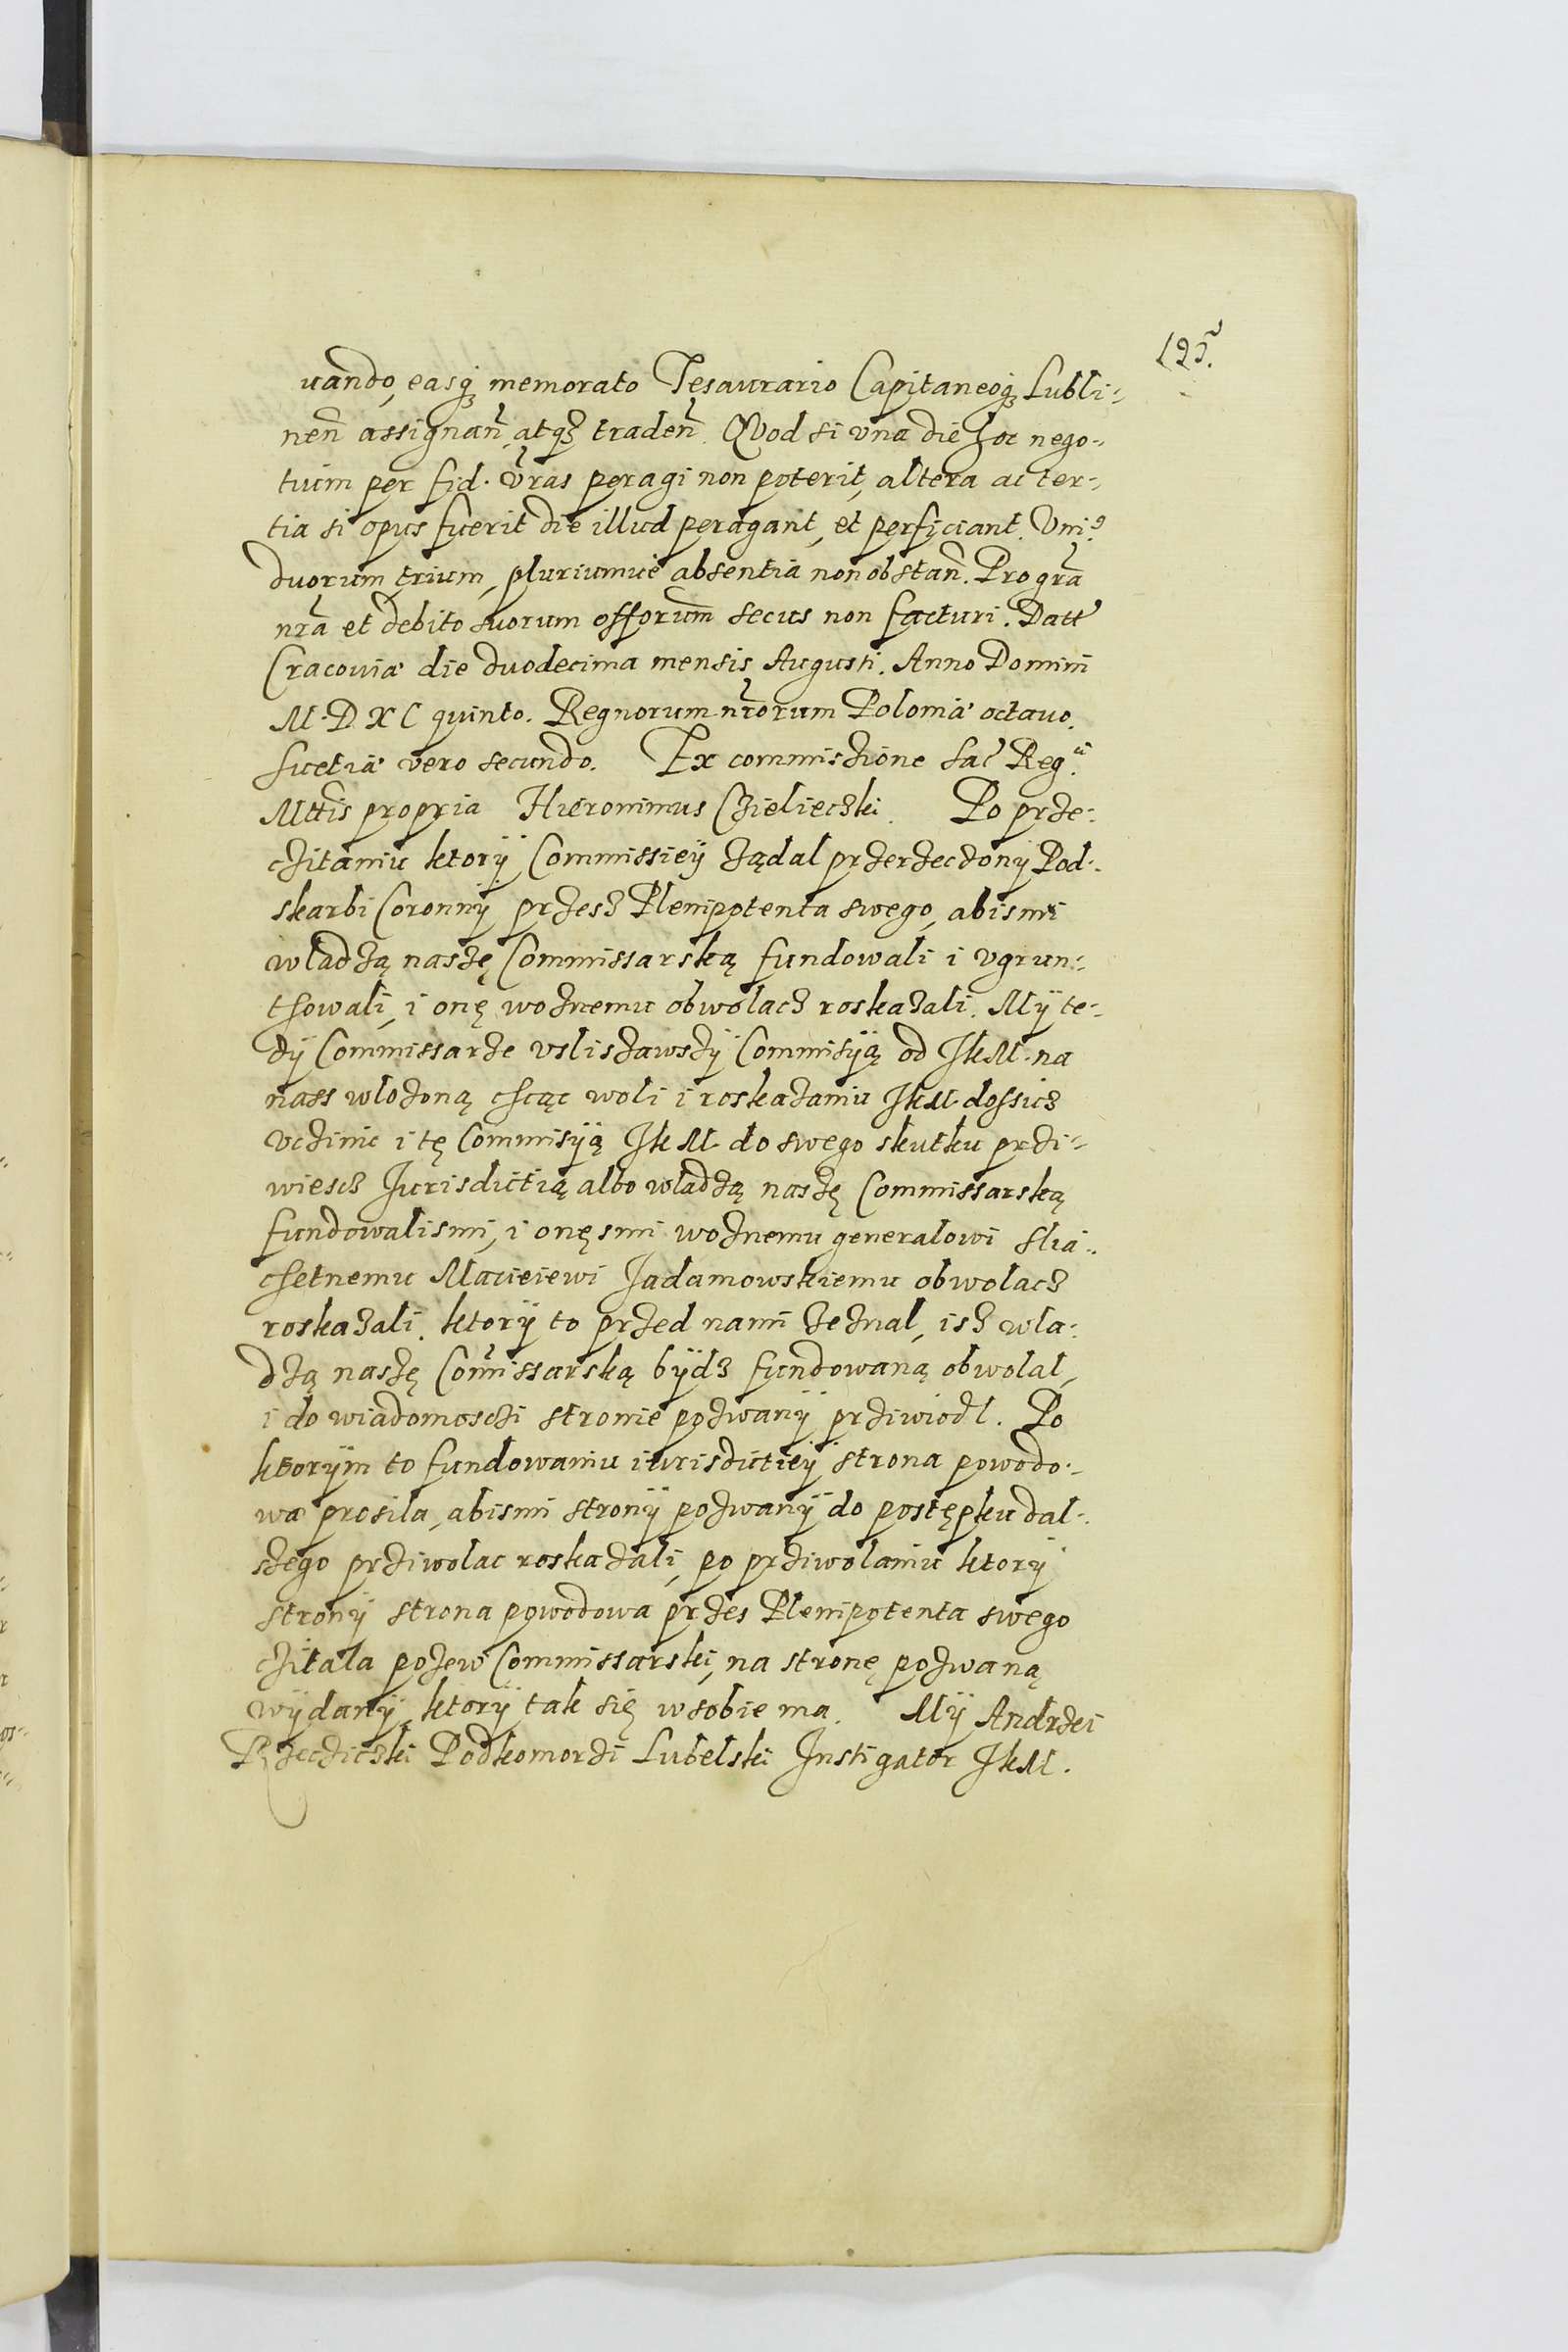 125.
uando, easq₃ memorato Tesaurario Capitaneoq₃ Lubli-
nen̄ assignan̄, atq₃ traden̄. QVod si vna die hoc nego-
tium per fid. v̄ras peragi non poterit, altera ac ter-
tia si opus fuerit die illud peragant, et perficiant. Vni⁹
duorum, trium, pluriumue absentia non obstan̄. Pro gr̄a
nr̄a et debito suorum offorum̄ secus non facturi. Datt
Cracouiæ die duodecima mensis Augusti. Anno Domini
M. D XC quinto. Regnorum nr̄orum Poloniæ octauo.
Suetiæ vero secundo. Ex commiszione Sac Reg.
Mttis propria Hieronimus Czielieczki. Po prze-
czitaniu ktorÿ Commissieÿ żądal przerzeczonÿ Pod-
skarbi Coronnÿ przesz Plenipotenta swego, abismi
wladzą naszę Commissarską fundowali i vgrun-
thowali, i onę woznemu obwolacz roskazali. Mÿ te-
dÿ Commissarze vsliszawszÿ Commisÿą od JkM. na
nass wlozoną chcąc woli i roskazaniu JkM dossicz
vczinic i tę Commisÿą JkM do swego skutku przi-
wiescz Jurisdictią albo wladzą naszę Commissarską
fundowalismi, i onęsmi woznemu generalowi Slia-
chetnemu Macieiewi Jadamowskiemu obwolacz
roskazali. ktorÿ to przed nami zeznal, isz wla-
dzą naszę Com̄issarską bÿdz fundowaną obwolal,
i do wiadomoszi stronie pozwanÿ prziwiodl. Po
ktorÿm to fundowaniu iurisdictieÿ strona powodo-
wa prosila, abismi stronÿ pozwanÿ do postępku dal-
szego prziwolac roskazali, po prziwolaniu ktorÿ
stronÿ strona powodowa przes Plenipotenta swego
czitala pozew Commissarski, na stronę pozwaną
wÿdanÿ, ktorÿ tak się w sobie ma. Mÿ Andrzei
Rzeczieczki Podkomorzi Lubelski Instigator JkM.